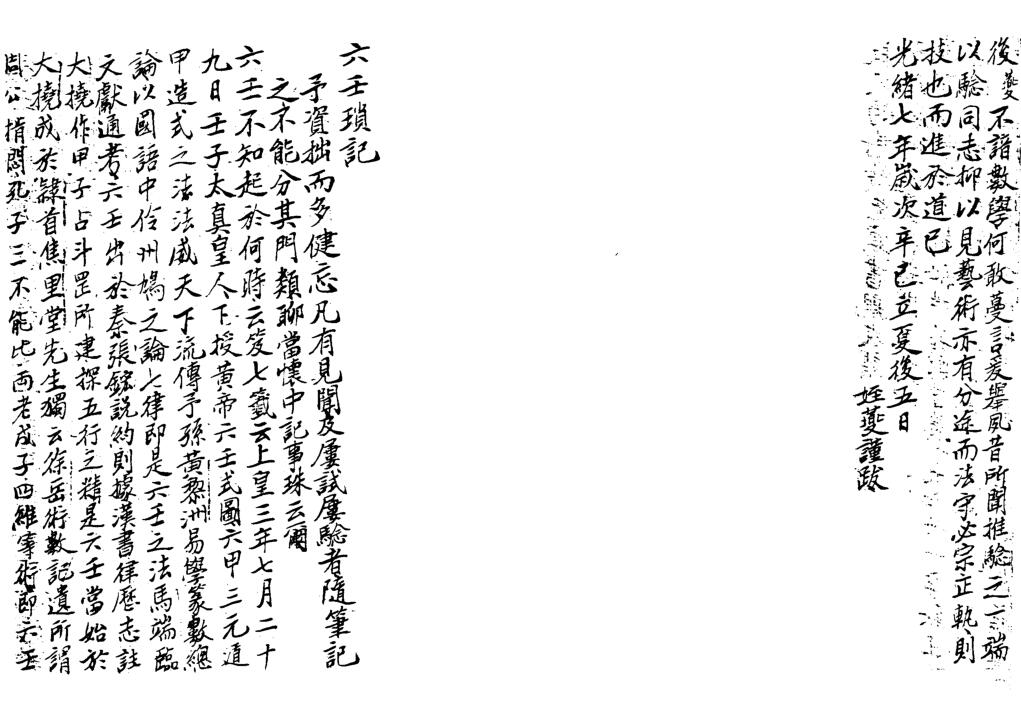 後夔不諳數學何敢蔓言爰舉夙昔所聞推驗之一二端
以驗同志抑以見藝術亦有分途而法守必宗正軌則
技也而進於道已
光緒七年歲次辛巳立夏後五日
姪夔謹跋
六壬瑣記
予資拙而多健忘凡有見聞及屢試屢驗者隨筆記
之不能分其門類聊當懷中記事珠云爾
六壬不知起於何時云笈七籤云上皇三年七月二十
九日壬子太真皇人下授黃帝六壬式圖六甲三元遁
甲造式之法法威天下流傳予孫黃黎洲易學篆數總
論以國語中伶州鳩之論七律即是六壬之法馬端臨
文獻通考六壬出於秦張鉉說約則據漢書律歷志註
大撓作甲子占斗罡所建探五行之精是六壬當始於
大撓成於隸首焦里堂先生獨云徐岳術數記遺所謂
周公揹悶孔子三不能比両老成子四維寧術即六壬